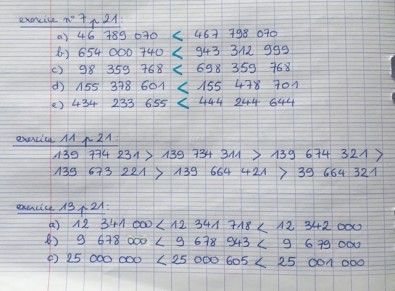 exercice n°7 p 21
a) 46 789 070 < 467 798 070
b) 654 000 740 < 943 312 999
c) 98 359 768 < 698 359 768
d) 155 378 601 < 155 478 701
e) 434 233 655 < 444 244 644
exercice 11 p 21:
139 774 231 > 139 734 311 > 139 674 321 >
139 673 221 > 139 664 421 > 39 664 321
exercice 13 p 21:
a) 12 341 000 < 12 341 718 < 12 342 000
b) 9 678 000 < 9 678 943 < 9 679 000
c) 25 000 000 < 25 000 605 < 25 001 000